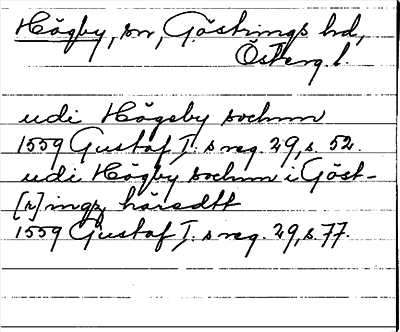 Högby, sn, Göstrings hd,
Österg. l.
udi Högeby sochnn
1559 Gustaf I:s reg. 29, s. 52.
udi Högby sochnn i Göst-
[r]ingz häradtt
1559 Gustaf I:s reg. 29, s. 77.